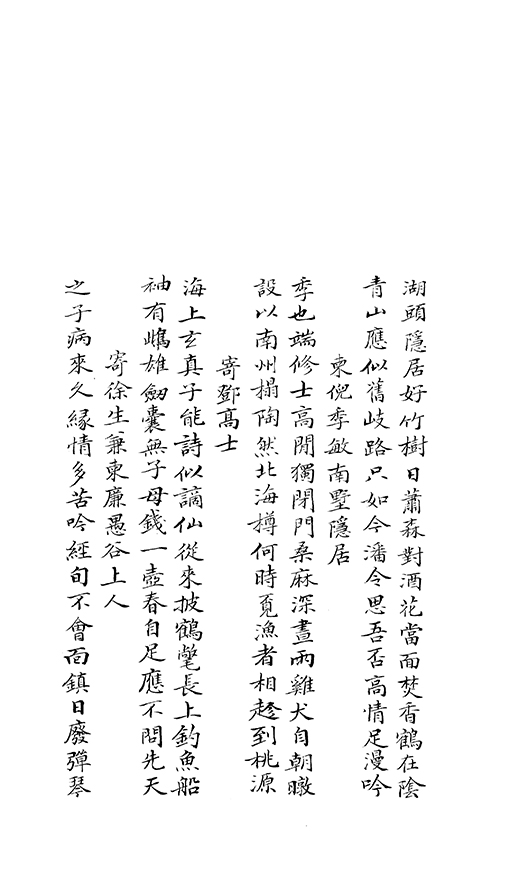 湖頭隱居好竹樹日蕭森對酒花當面焚香鶴在陰
青山應似舊歧路只如今潘令思吾否高情足漫吟
柬倪季敏南墅隱居
季也端修士高閒獨閉門桑麻深晝雨雞犬自朝暾
設以南州榻陶然北海樽何時覓漁者相趂到桃源
寄鄧高士
海上玄真子能詩似謫仙從來披鶴氅長上釣魚船
袖有鴟雄劒囊無子母錢一壺春自足應不問先天
寄徐生兼柬廉愚谷上人
之子病來久緣情多苦吟經旬不會面鎮日廢彈琴